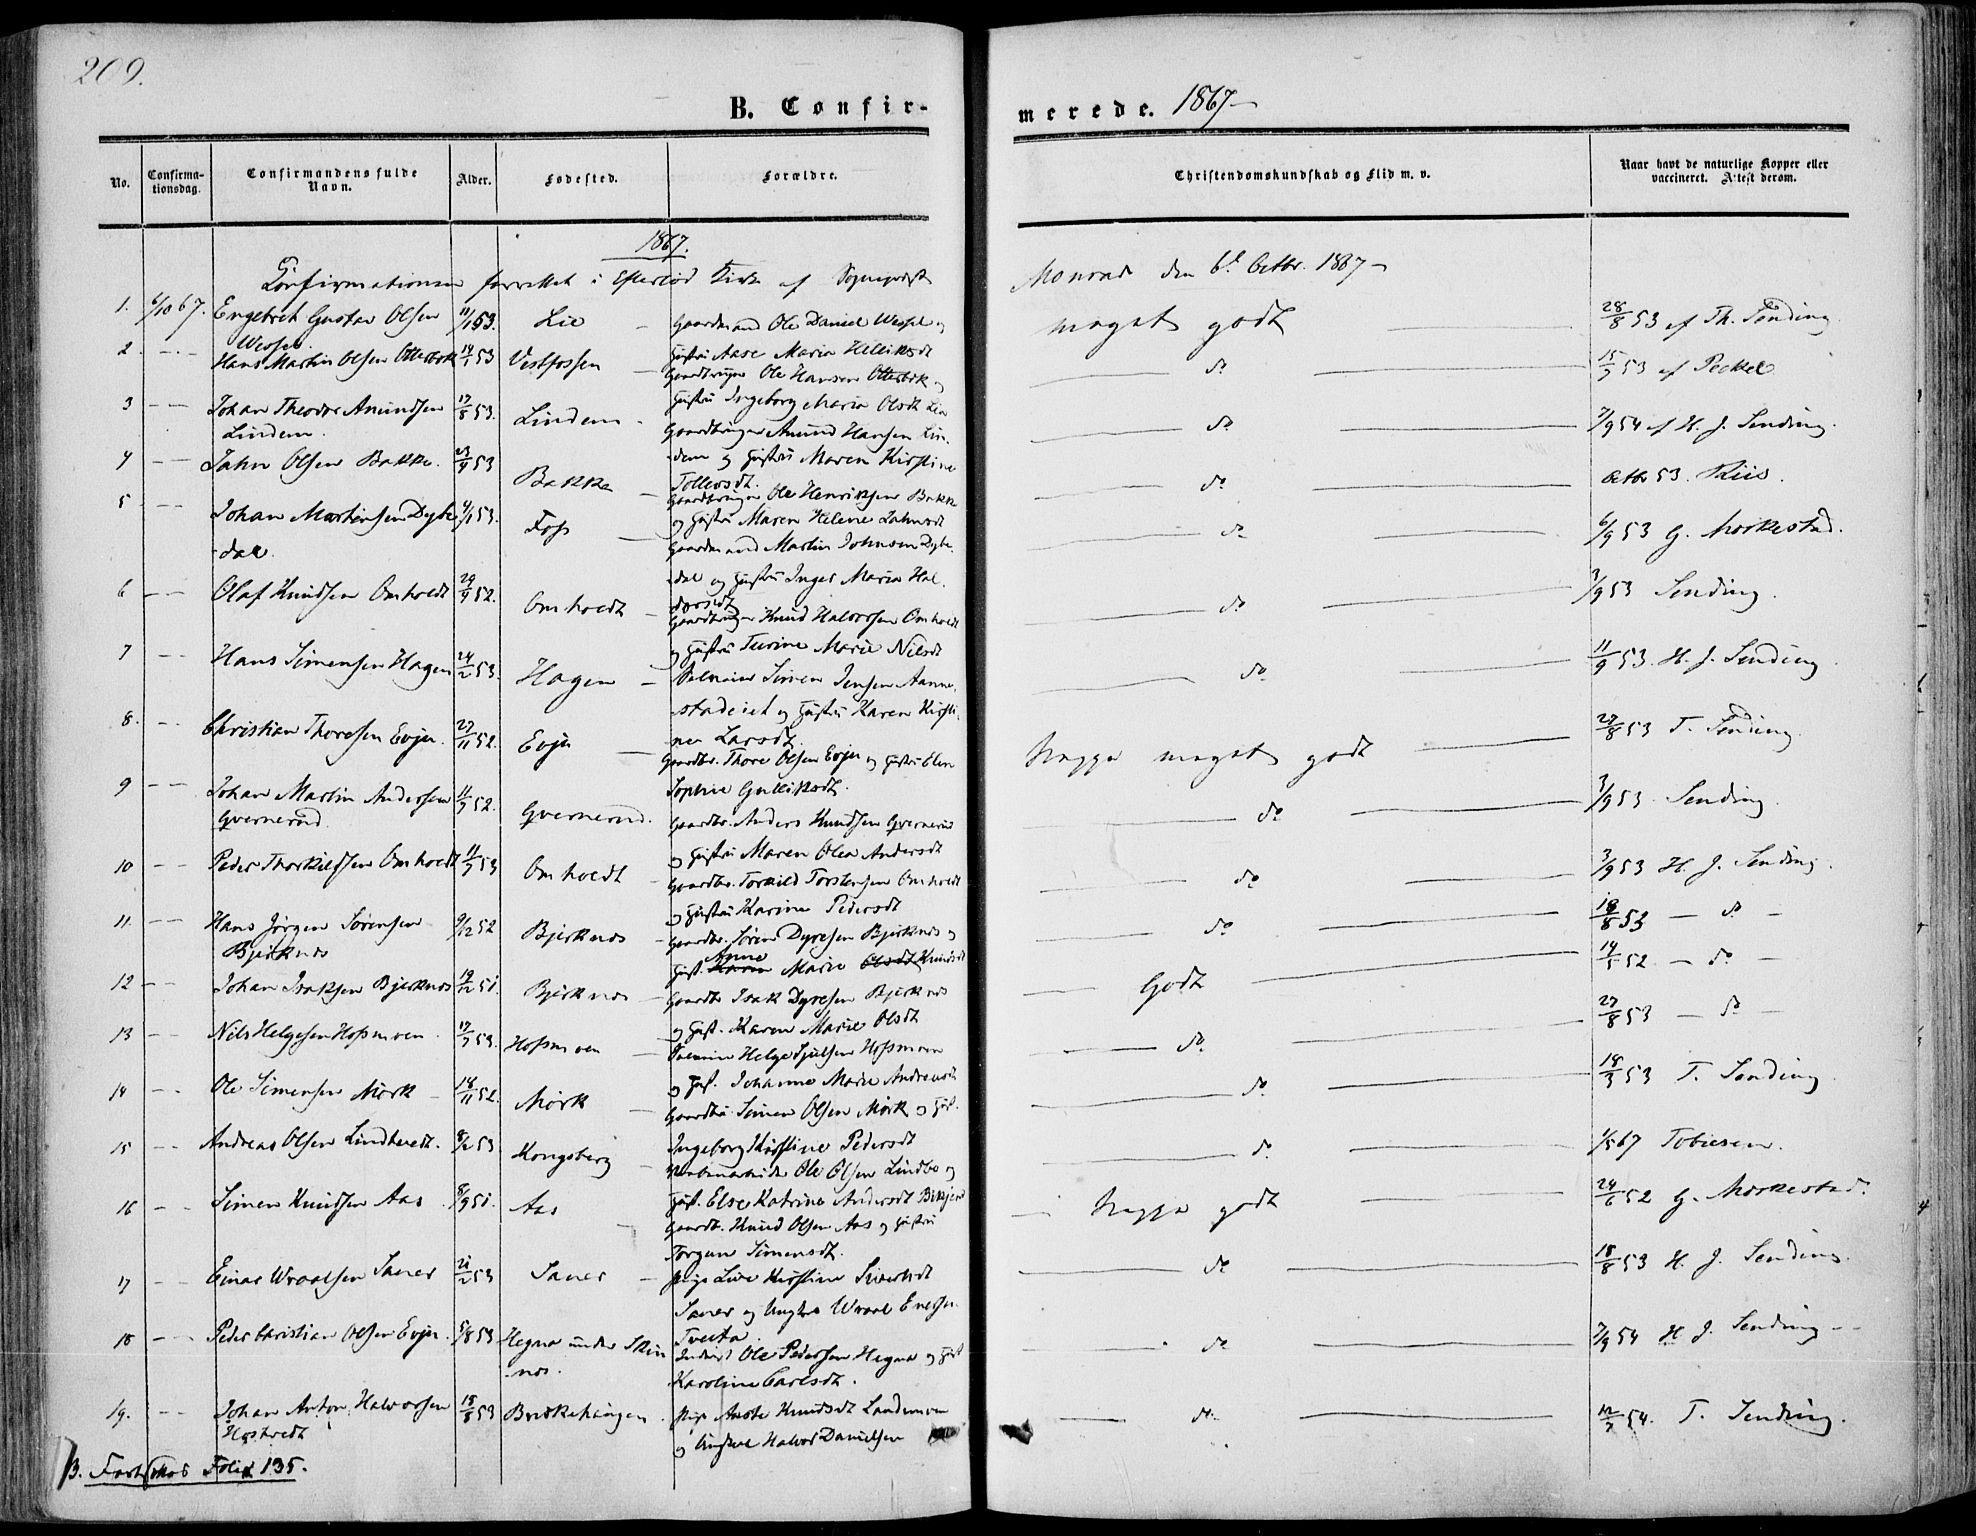 209.
B. Confir-
merede. 1867 –
No.
Confirma-
tionsdag.
Confirmandens fulde
Navn.
Alder.
Fødested.
Forældre.
Christendomskundskab og Flid m. v.
Naar havt de naturlige Kopper eller
vaccineret. Attest derom.
1867.
Confirmationen forrettet i Eftelød Kirke af Sognepræst
Monrad den 6t Octbr. 1867 –
1. 6/10 67. Engebret Gustav Olsen 11/1 53. Lie – Gaardmand Ole Daniel Wessel og
Wessel. Hustru Aase Maria Helliksdt
meget godt 28/8 53 af Th. Sending.
2. – – Hans Martin Olsen Otterbæk 14/1 53 Vestfossen – Gaardbruger Ole Hansen Otterbæk og
Hustru Ingeborg Maria Olsdt Lia
do 15/9 53 af Peckel
3 – – Johan Theodor Amundsen 17/8 53. Lindem – Gaardbruger Amund Hansen Lin-
Lindem. dem og Hustru Maren Kirstine
Tollevsdt.
do 7/9 54 af H. J. Sending.
4 – – Jahn Olsen Bakke. 23/9 53 Bakke – Gaardbruger Ole Henriksen Bakke
og Hustru Maren Helene Jahnsdt
do Octbr 53. Riis.
5 – – Johan Martinsen Dybe- 4/1 53. Foss – Gaardmand Martin Johnsen Dybe-
dal. dal og Hustru Inger Maria Hal-
vorsdt
do 6/9 53 G. Morkestad.
6 – – Olaf Knudsen Omholdt 29/9 52. Omholdt – Gaardbruger Knud Halvorsen Omholdt
og Hustru Turine Marie Nilsdt
do 3/9 53 Sending.
7 – – Hans Simensen Hagen 24/2 53. Hagen – Simen Jensen Aanne-
stadeiet og Hustru Karen Kirsti-
ne Larsdt.
do 11/9 53. H. J. Sending
8. – – Christian Thoresen Evju. 27/11 52. Evju – Gaardbr. Thore Olsen Evju og Hustru Elen
Sophie Gulliksdt.
Meget godt 27/8 53 T. Sending.
9 – – Johan Martin Andersen 11/9 52. Gvernerud. Gaardbr. Anders Knudsen Gvernerud
Gvernerud og Hustru Maren Olea Andersdt
do 3/9 53. Sending.
10 – – Peder Thorkildsen Omholdt 11/7 53 Omholdt – Gaardbr. Torkild Torstensen Omholdt
og Hustru Karine Pedersdt
do 3/9 53 H. J. Sending.
11. – – Hans Jörgen Sörensen 9/12 52 Bjerknes – Gaardbr. Sören Dyresen Bjerknes og
Bjerknes Hust. Anne Marie Knudsdt
do 18/8 53 – do –
12 – – Johan Isaksen Bjerknes 19/12 51. Bjerknes – Gaardbr Isak Dyresen Bjerknes
og Hust. Karen Marie Olsdt
Godt 14/5 52 – do –
13 – – Nils Helgesen Hofsmoen. 17/7 53. Hofsmoen – Helge Hofsmoen
og Hust. Johanne Marie Andreasdt
do 27/8 53 – do –
14 – – Ole Simensen Mörk – 18/11 52. Mörk – Gaardbr. Simen Olsen Mörk og Hust.
Ingeborg Kirstine Pedersdt
do. 18/3 53 T. Sending
15 – – Andreas Olsen Lindtvedt. 8/2 53 Kongsberg – Ole Olsen Lindbo og
Hust. Else Katrine Andersdt
do. 1/5 67 Tobiesen.
16 – – Simen Knudsen Aas 8/9 51. Aas – Gaardb. Knud Olsen Aas og Hustru
Jørgun Simensdt.
godt 24/6 52 G. Morkestad.
17 – – Einar Wraalsen Saner 21/2 53 Saner – Pige Live Kirstine Siversdt
Saner og Ungkar Wraal Enersen
Tveita.
do 18/8 53 H. J. Sending.
18 – – Peder Christian Olsen Evju. 5/8 53 Hegna under Skin- Inderst Ole Pedersen Hegna og Hust
nes. Karoline Carlsdt.
do 7/9 54 H. J. Sending – –
19. – – Johan Anton Halvorsen 15/8 53 Brekkehaugen. Pige Anette Knudsdt Landemoen
Hostvedt og Ungkarl Halvor Danielsen
do. 12/7 54. T. Sending.
B. Fortsættes Folio 135.